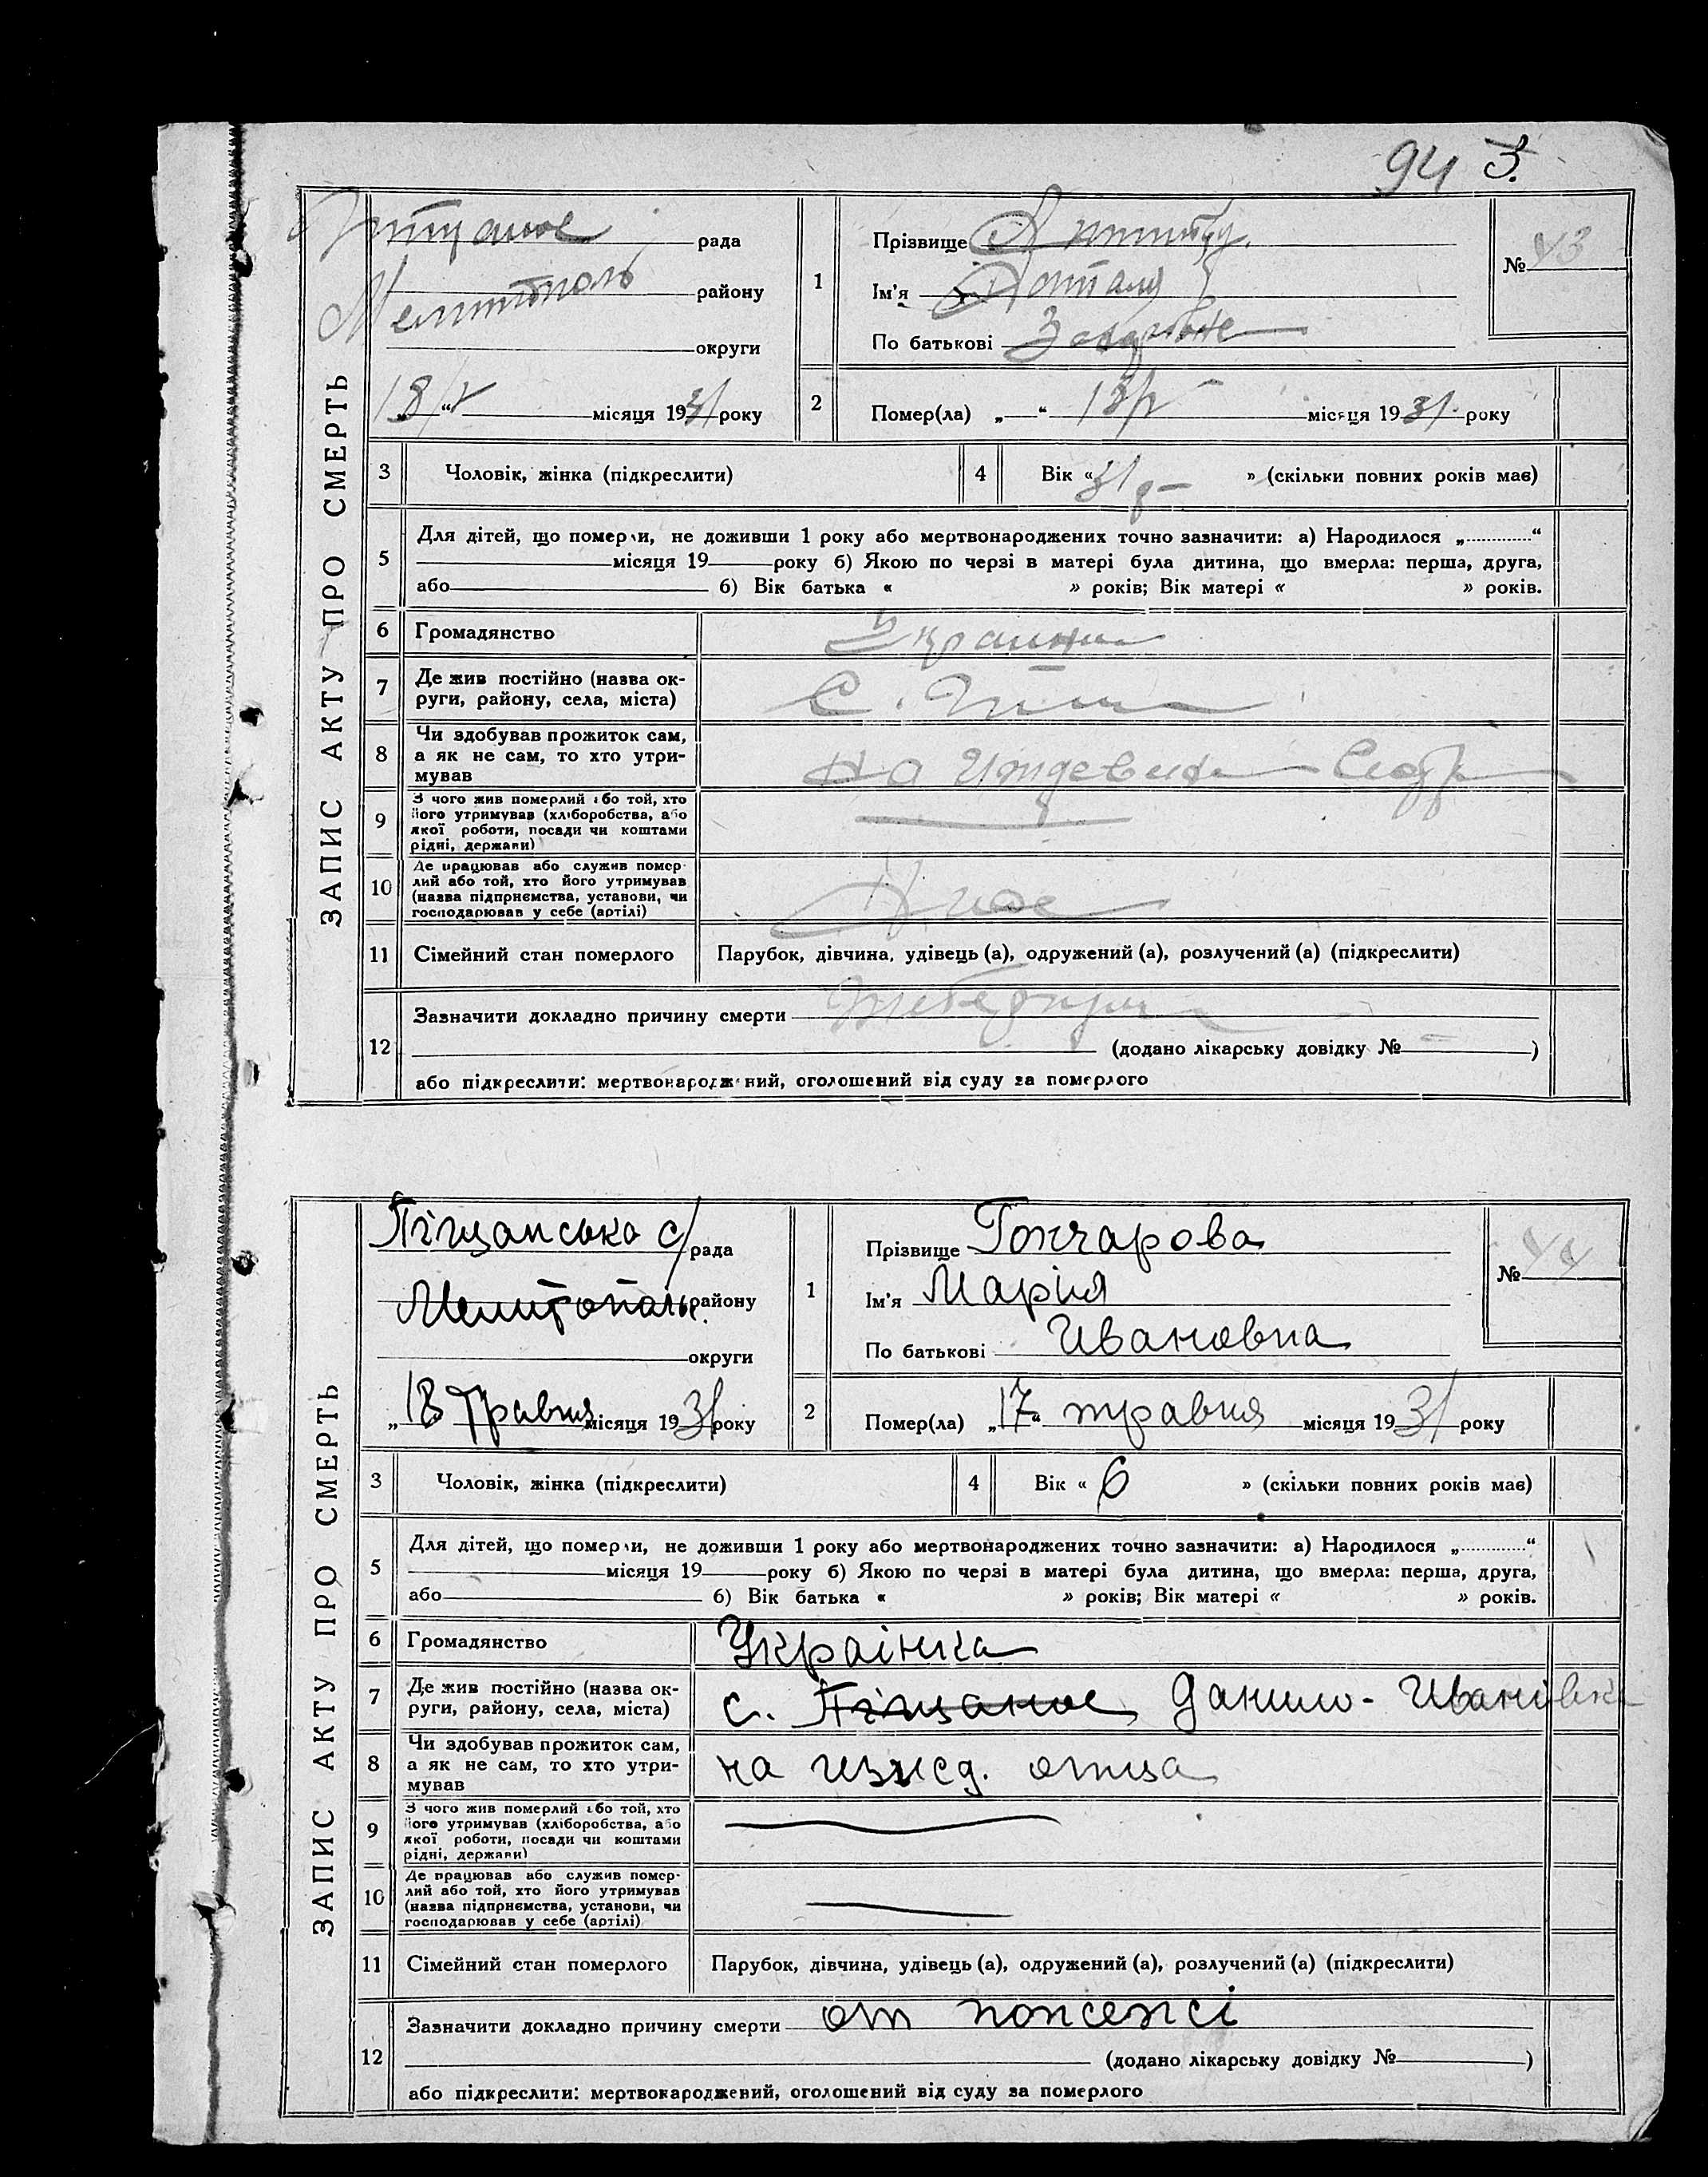 94 3.
ЗАПИС АКТУ ПРО СМЕРТЬ
рада
Мелитополь району
округи
18/V місяця 1931 року
1
Прізвище
Ім'я
По батькові
№ 43
2
Помер(ла) „ “ 18/V місяця 1931 року
3 Чоловік, жінка (підкреслити)
4 Вік « 31 » (скільки повних років має)
5
Для дітей, що померли, не доживши 1 року або мертвонароджених точно зазначити: а) Народилося „ “
місяця 19 року б) Якою по черзі в матері була дитина, що вмерла: перша, друга,
або б) Вік батька « » років; Вік матері « » років.
6 Громадянство
7 Де жив постійно (назва ок-
руги, району, села, міста) С.
8 Чи здобував прожиток сам,
а як не сам, то хто утри-
мував на
9 З чого жив померлий або той, хто
його утримував (хліборобства, або
якої роботи, посади чи коштами
рідні, держави)
10 Де працював або служив помер-
лий або той, хто його утримував
(назва підприємства, установи, чи
господарював у себе (артілі)
11 Сімейний стан померлого Парубок, дівчина, удівець (а), одружений (а), розлучений (а) (підкреслити)
12
Зазначити докладно причину смерти
(додано лікарську довідку № )
або підкреслити: мертвонароджений, оголошений від суду за померлого
ЗАПИС АКТУ ПРО СМЕРТЬ
Піщанська с/рада
Мелитополь. району
округи
„18 травня місяця 1931 року
1
Прізвище Гончарова
Ім'я Марія
По батькові Ивановна
№ 44
2
Помер(ла) „17“ травня місяця 1931 року
3 Чоловік, жінка (підкреслити)
4 Вік « 6 » (скільки повних років має)
5
Для дітей, що померли, не доживши 1 року або мертвонароджених точно зазначити: а) Народилося „ “
місяця 19 року б) Якою по черзі в матері була дитина, що вмерла: перша, друга,
або б) Вік батька « » років; Вік матері « » років.
6 Громадянство Українка
7 Де жив постійно (назва ок-
руги, району, села, міста) с. Піщаное Данило-Иванівка
8 Чи здобував прожиток сам,
а як не сам, то хто утри-
мував на отца
9 З чого жив померлий або той, хто
його утримував (хліборобства, або
якої роботи, посади чи коштами
рідні, держави)
10 Де працював або служив помер-
лий або той, хто його утримував
(назва підприємства, установи, чи
господарював у себе (артілі)
11 Сімейний стан померлого Парубок, дівчина, удівець (а), одружений (а), розлучений (а) (підкреслити)
12
Зазначити докладно причину смерти от
(додано лікарську довідку № )
або підкреслити: мертвонароджений, оголошений від суду за померлого